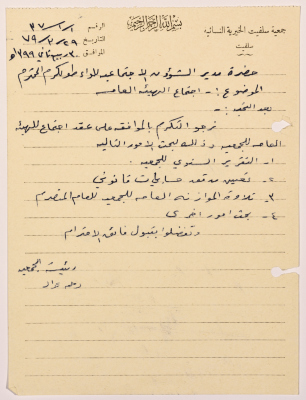 بسم الله الرحمن الرحيم
جمعية سلفيت الخيرية النسائية
سلفيت
الرقم ٣٧/١/١
التاريخ ٧٩/٣/٢٩
الموافق ٣٠ ربيع ثاني ١٣٩٩هـ
حضرة مدير الشؤون الاجتماعية للواء طولكرم المحترم
الموضوع :- اجتماع الهيئة العامه
بعد التحيه :-
نرجو التكرم بالموافقه على عقد اجتماع للهيئة
العامه للجمعيه وذلك لبحث الأمور التاليه
١- التقرير السنوي للجمعيه
٢- تعيين مدقق حسابات قانوني
٣- تلاوة الموازنه العامه للجمعيه للعام المنصرم
٤- بحث امور اخرى
وتفضلوا بقبول فائق الاحترام
رئيسة الجمعيه